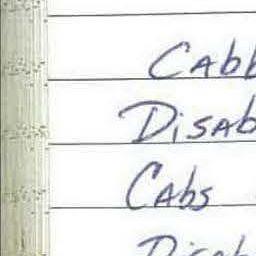 Cabb
Disab
Cabs
Disab